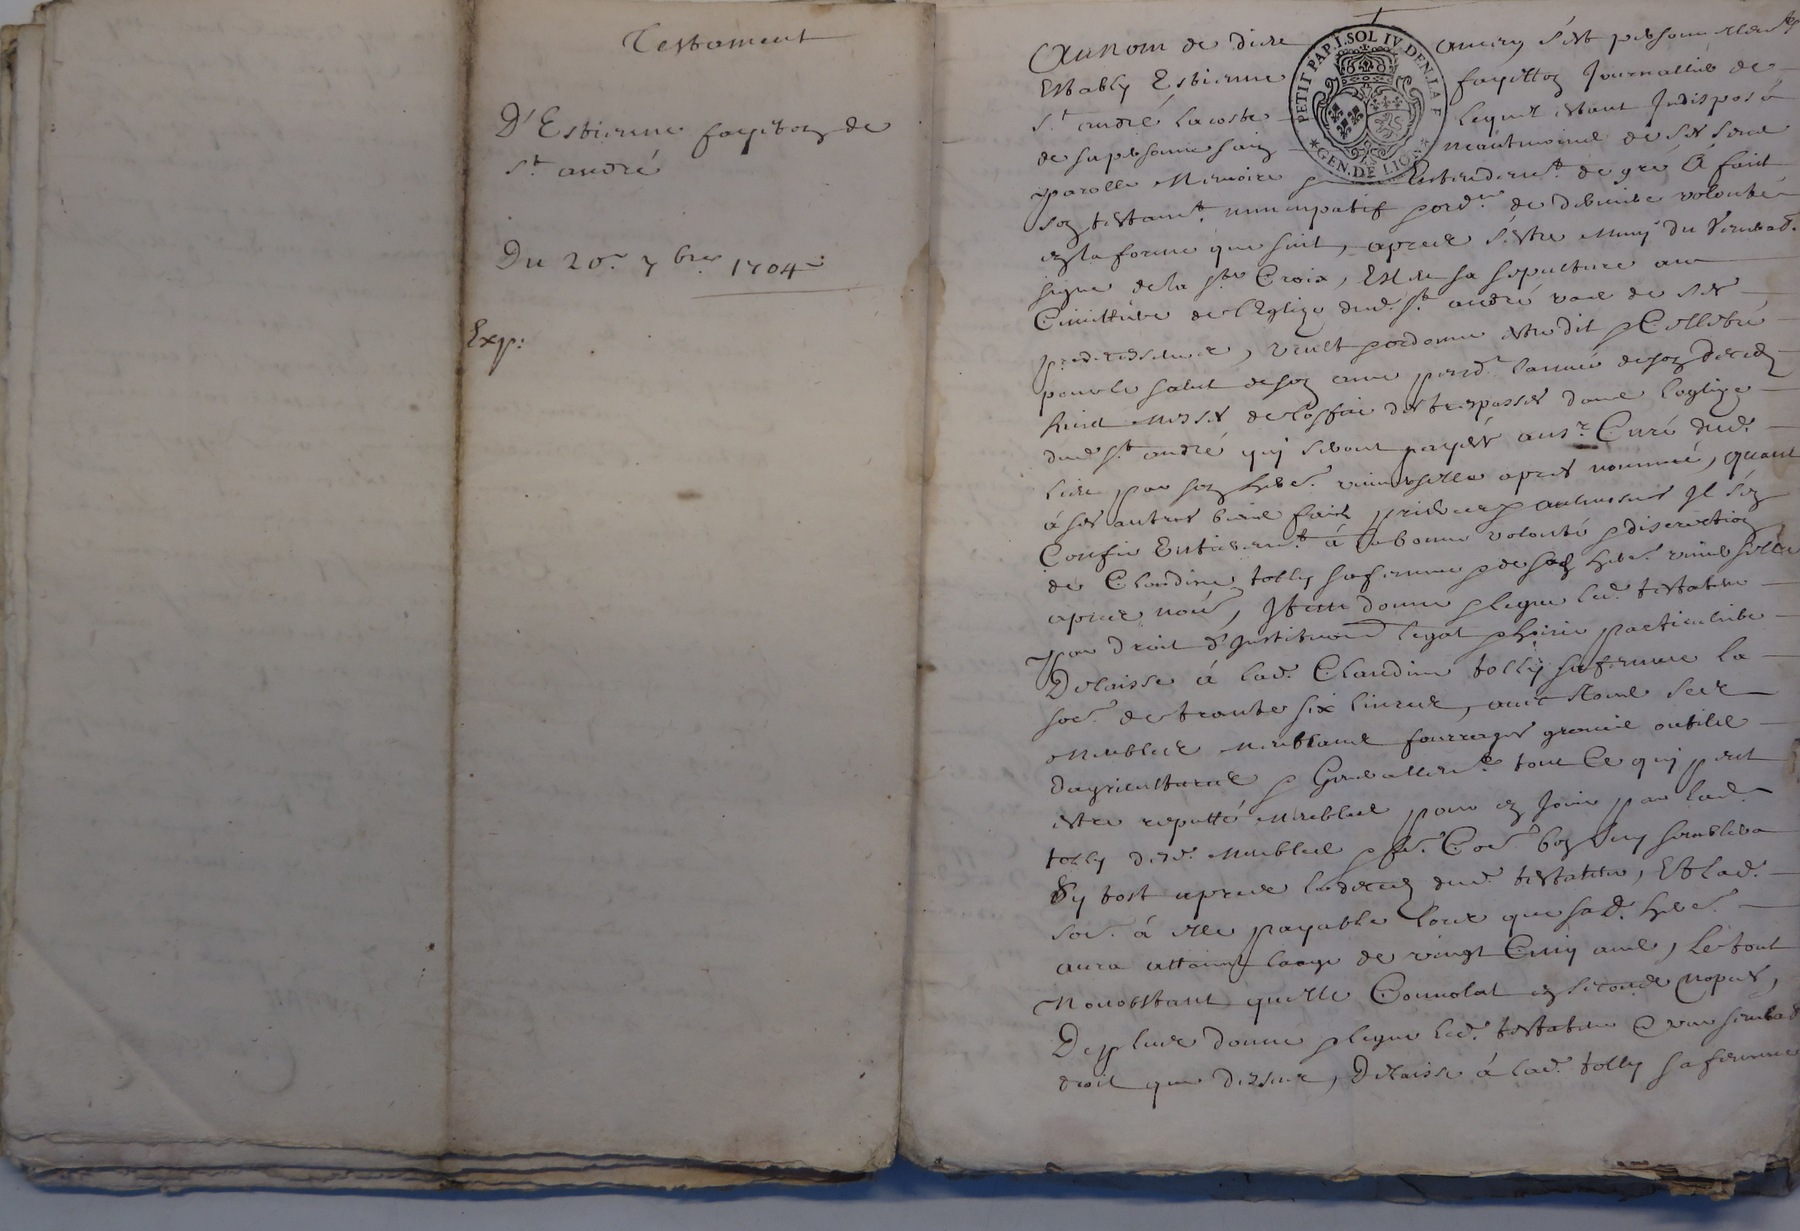 Testament
D'Estienne fayitoz de
St. andré
Du 20e. 7bre 1704
Exp:
Au nom de dieu amen s'est personnellemt
Estably Estienne fayitton Journallier de
St. andré lacoste lequel estant Indisposé
de sa personne sain néantmoins de ses sens
parolle Memoire & Entendemt. de gré A fait
son testamt. nuncupatif & ordre. de derniere volonté
en la forme que suit, apres s'estre Muny du Venerable
signe de la ste Croix, Eslit sa sepulture au
Cimittiere de l'Eglize dud. St. andré vas de ses
predecesseurs, veult & ordonne estre dit & Cellebré
pour le salut de son ame pendt. l'année de son decedz
huict Messes de l'offic des trespassés dans l'eglize
dud. St. andré qui seront payées au sr. Curé dud.
lieu par son here. universelle apres nommée, quant
à ses autres biens faits prieres & aulmosnes Il s'en
Confie Entieremt. à la bonne volonté & discrection
de Claudine tolly sa femme & de sad. here. universelle
apres nomé, Item donne & legue led. testateur
par droit d'Institution legat & hoirie particuliere
Delaisse à lad. Claudine tolly sa femme la
soe. de trante six livres, avec tous ses
Meubles Meublans fourrages grains outils
d'agriculture & Generallemt. tout Ce qui peut
estre reputté Meubles pour en Jouir par lad.
tolly desd. Meubles & fe. Coe. bon luy semblera
Sy tost apres le decedz dud. testateur, Et lad.
soe. à elle payable lors que sad. here.
aura attaint l'aage de vingt Cinq ans, Le tout
Nonobstant qu'elle Convolat en seconde nopces,
De plus donne & legue led. testateur & par semblable
droit que dessus, Delaisse à lad. tolly sa femme
PETIT PAP. I. SOL IV. DEN. LA F
GEN. DE LION